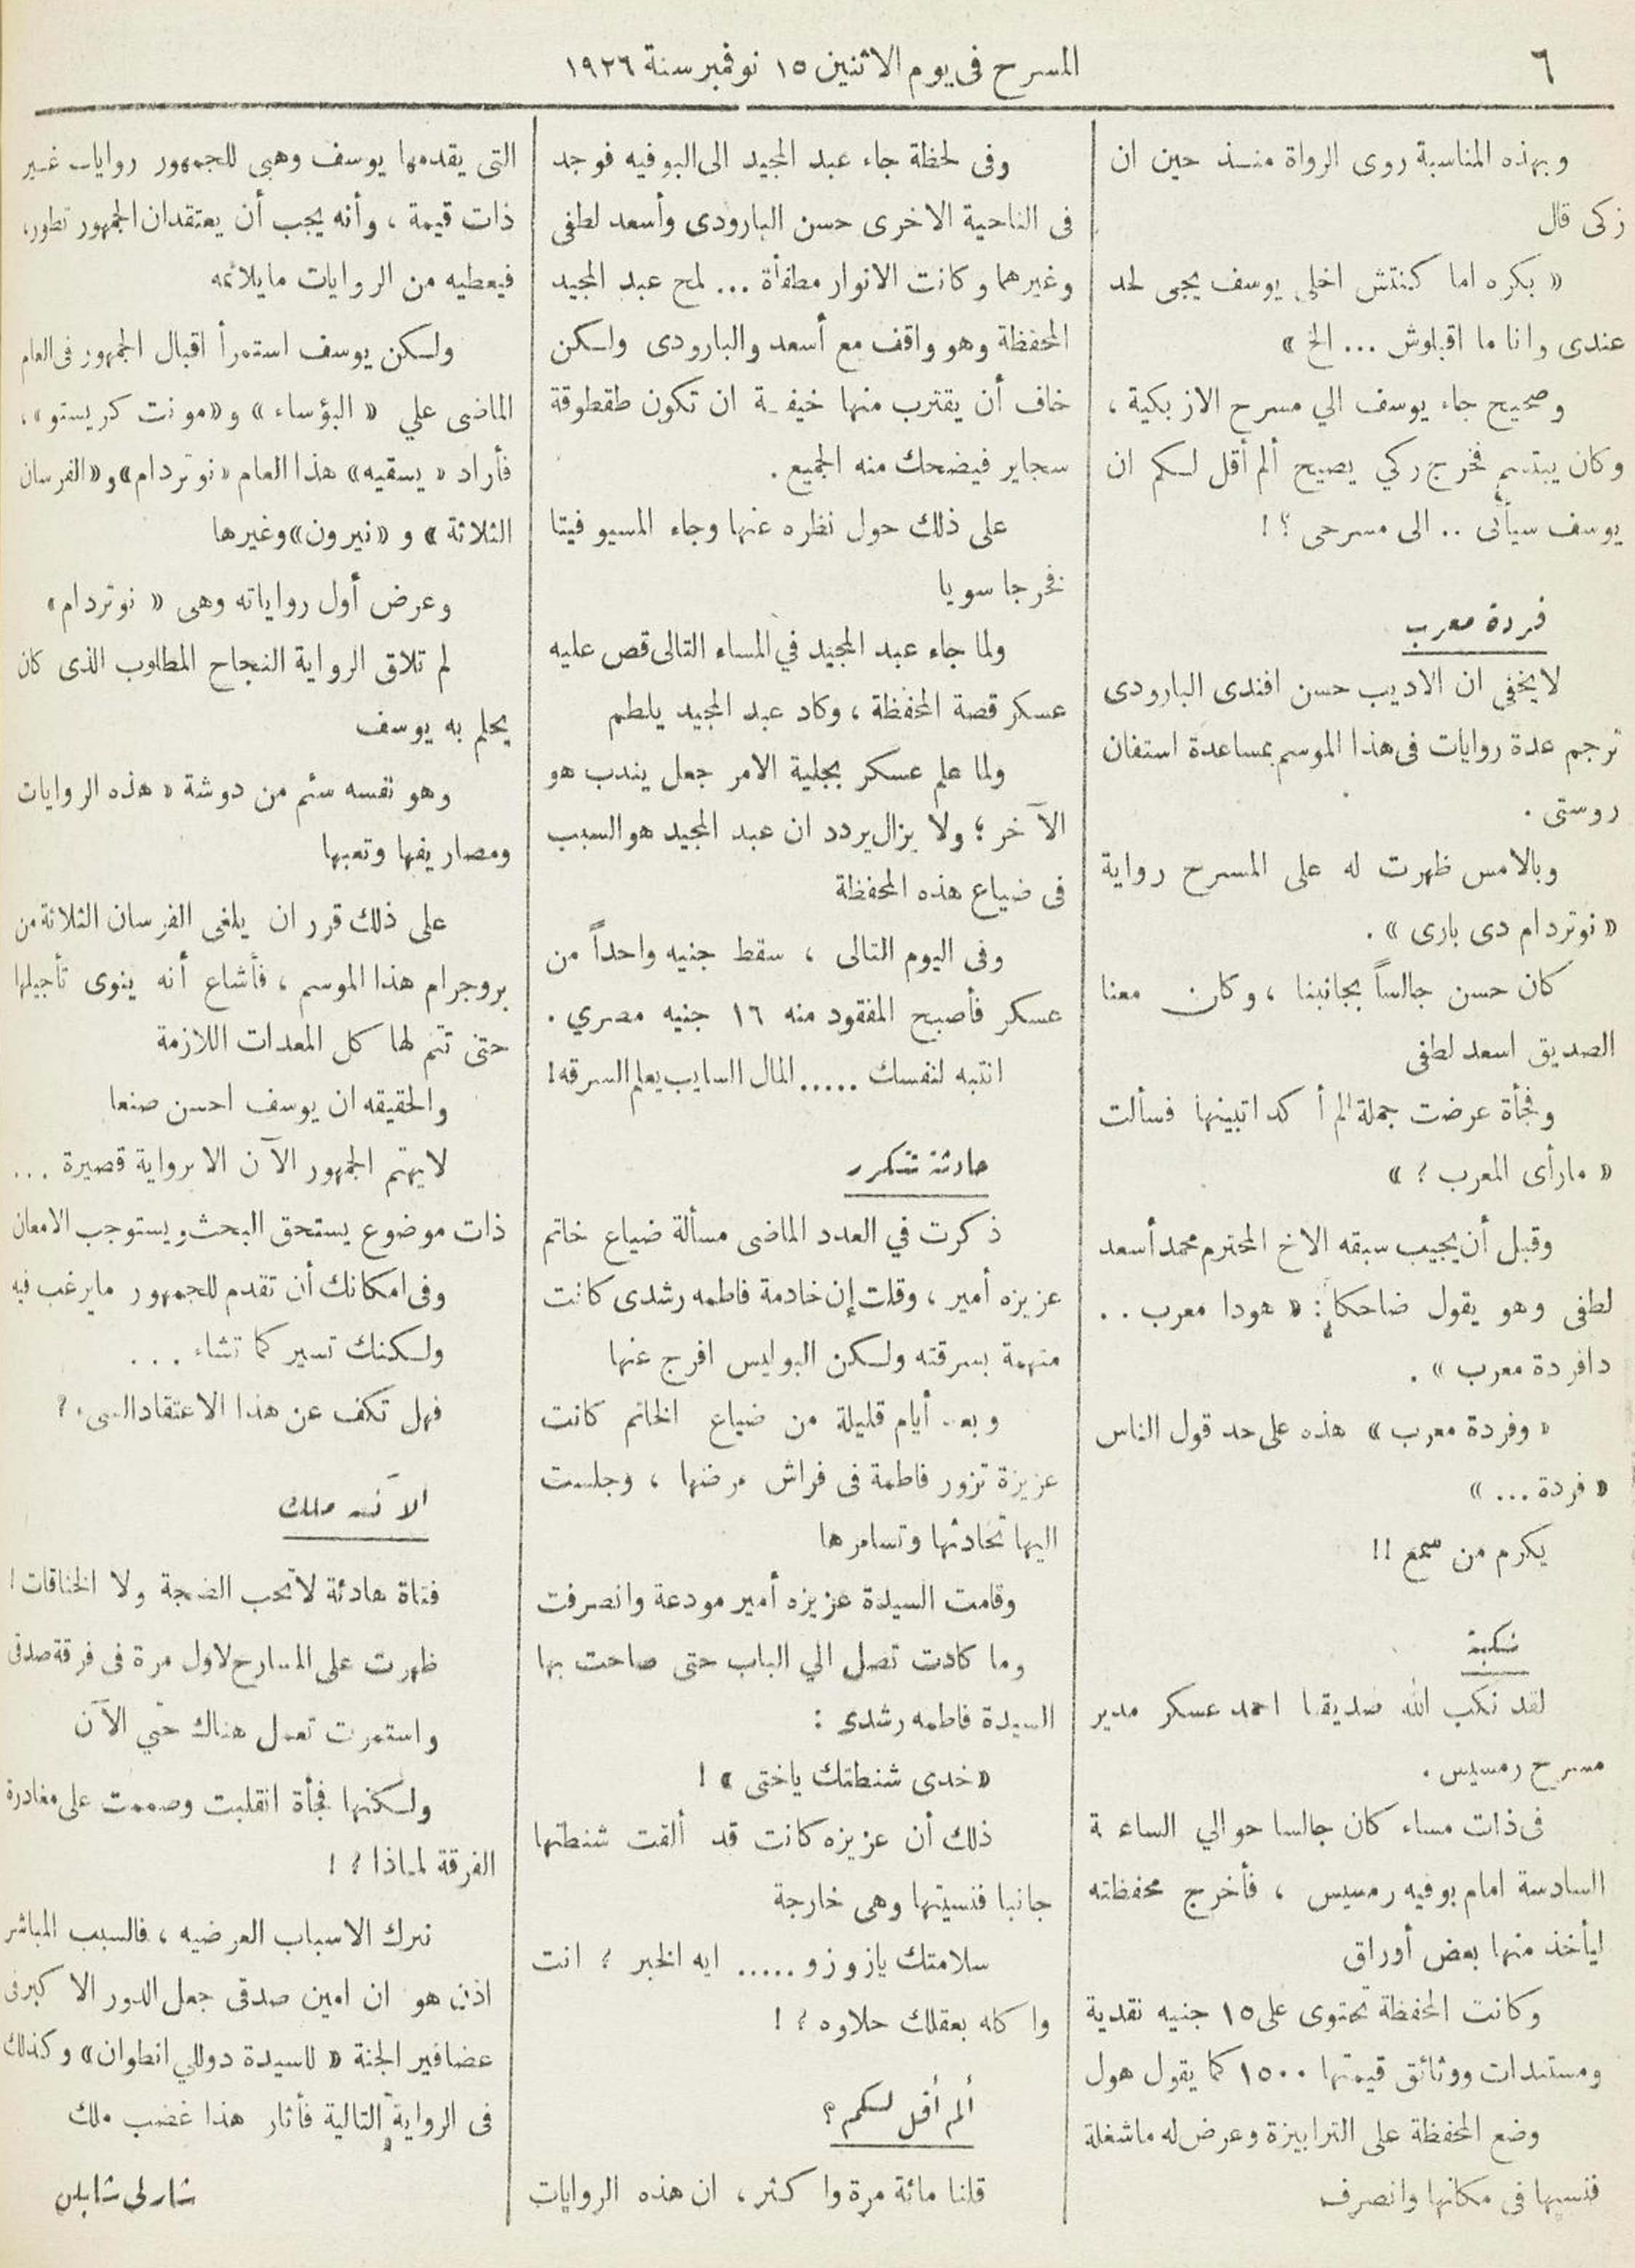 ٦
المسرح فى يوم الاثنين ١٥ نوفمبر سنة ١٩٢٦
وبهذه المناسبة روى الرواة منذ حين ان
زكى قال
« بكره اما كنتش اخلى يوسف يجى لحد
عندى وانا ما اقبلوش ... الخ »
وصحيح جاء يوسف الي مسرح الازبكية ،
وكان يبتسم فخرج زكي يصيح ألم أقل لكم ان
يوسف سيأتى .. الى مسرحى ؟ !
فردة معرب
لايخفي ان الاديب حسن افندى البارودى
ترجم عدة روايات فى هذا الموسم بمساعدة استفان
روستى .
وبالامس ظهرت له على المسرح رواية
« نوتردام دى بارى » .
كان حسن جالساً بجانبنا ، وكان معنا
الصديق اسعد لطفى
وفجأة عرضت جملة لم أكد اتبينها فسألت
« مارأى المعرب ؟ »
وقبل أن يجيب سبقه الاخ المحترم محمد أسعد
لطفى وهو يقول ضاحكا : « هودا معرب . .
دافردة معرب » .
« وفردة معرب » هذه على حد قول الناس
« فردة ... »
يكرم من سمع !!
نكبة
لقد نكب الله صديقنا احمد عسكر مدير
مسرح رمسيس .
فى ذات مساء كان جالسا حوالي الساعة
السادسة امام بوفيه رمسيس ، فأخرج محفظته
ليأخذ منها بعض أوراق
وكانت المحفظة تحتوى على ١٥ جنيه نقدية
ومستندات ووثائق قيمتها ١٥٠٠ كما يقول هول
وضع المحفظة على الترابيزة وعرض له ماشغله
فنسيها فى مكانها وانصرف
وفى لحظة جاء عبد المجيد الى البوفيه فوجد
فى الناحية الاخرى حسن البارودى وأسعد لطفى
وغيرهما وكانت الانوار مطفأة ... لمح عبد المجيد
المحفظة وهو واقف مع أسعد والبارودى ولكن
خاف أن يقترب منها خيفة ان تكون طقطوقة
سجاير فيضحك منه الجميع .
على ذلك حول نظره عنها وجاء المسيو فيتا
فخرجا سويا
ولما جاء عبد المجيد في المساء التالى قص عليه
عسكر قصة المحفظة ، وكاد عبد المجيد يلطم
ولما علم عسكر بجلية الامر جعل يندب هو
الآخر ؛ ولا يزال يردد ان عبد المجيد هو السبب
فى ضياع هذه المحفظة
وفى اليوم التالى ، سقط جنيه واحداً من
عسكر فأصبح المفقود منه ١٦ جنيه مصري .
انتبه لنفسك ..... المال السايب يعلم السرقه !
حادثة تتكرر
ذكرت في العدد الماضى مسألة ضياع خاتم
عزيزه أمير ، وقلت إن خادمة فاطمه رشدى كانت
متهمة بسرقته ولكن البوليس افرج عنها
وبعد أيام قليلة من ضياع الخاتم كانت
عزيزة تزور فاطمة فى فراش مرضها ، وجلست
اليها تحادثها وتسامرها
وقامت السيدة عزيزه أمير مودعة وانصرفت
وما كادت تصل الي الباب حتى صاحت بها
السيدة فاطمه رشدى :
« خدى شنطتك ياختى » !
ذلك أن عزيزه كانت قد ألقت شنطتها
جانبا فنسيتها وهى خارجة
سلامتك يازوزو ..... ايه الخبر ؟ انت
واكله بعقلك حلاوه ؟ !
ألم أقل لكم ؟
قلنا مائة مرة واكثر ، ان هذه الروايات
التى يقدمها يوسف وهبى للجمهور روايات غير
ذات قيمة ، وأنه يجب أن يعتقد ان الجمهور تطور ،
فيعطيه من الروايات مايلائمه
ولكن يوسف استمرأ اقبال الجمهور فى العام
الماضى علي « البؤساء » و«مونت كريستو» ،
فأراد « يسقيه » هذا العام «نوتردام» و«الفرسان
الثلاثة » و «نيرون» وغيرها
وعرض أول رواياته وهى « نوتردام »
لم تلاق الرواية النجاح المطلوب الذى كان
يحلم به يوسف
وهو نفسه سئم من دوشة « هذه الروايات
ومصاريفها وتعبها
على ذلك قرر ان يلغى الفرسان الثلاثة من
بروجرام هذا الموسم ، فأشاع أنه ينوى تأجيلها
حتى تتم لها كل المعدات اللازمة
والحقيقه ان يوسف احسن صنعا
لايهتم الجمهور الآن الا برواية قصيرة ...
ذات موضوع يستحق البحث ويستوجب الامعان
وفى امكانك أن تقدم للجمهور مايرغب فيه
ولكنك تسير كما تشاء ...
فهل تكف عن هذا الاعتقاد السىء ؟
الآنسه ملك
فتاة هادئة لاتحب الضجة ولا الخناقات !
ظهرت على المسارح لاول مرة فى فرقة صدقى
واستمرت تعمل هناك حتي الآن
ولكنها فجأة انقلبت وصممت على مغادرة
الفرقة لماذا ؟ !
نترك الاسباب العرضيه ، فالسبب المباشر
اذن هو ان امين صدقى جعل الدور الاكبر فى
عصافير الجنة « للسيدة دوللي انطوان» وكذلك
فى الرواية التالية فأثار هذا غضب ملك
شارلى شابلن